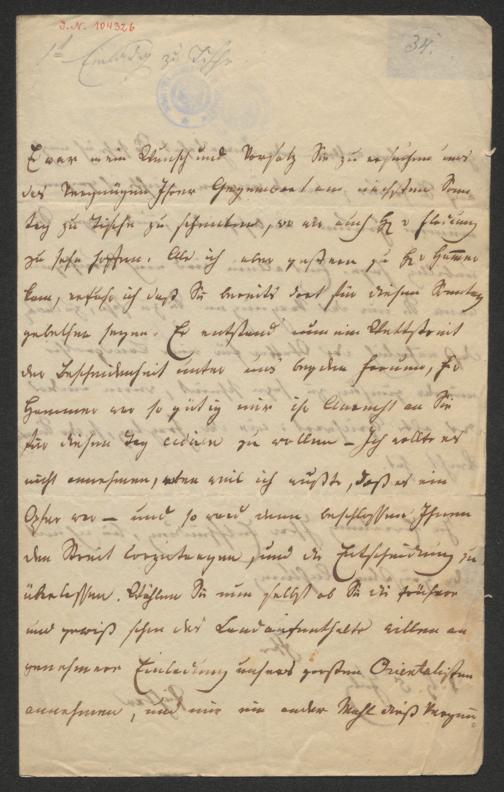 I. N. 104326
1te Einladg zu Tische
34.
Es war mein Wunsch und Vorsatz Sie zu ersuchen uns
das Vergnügen Ihrer Gegenwart am nächsten Sonn
tag zu Tische zu schenken, wo wir auch H v
zu sehn hoffen. Als ich aber gestern zu Hr v Hammer
kam, erfuhr ich daß Sie bereits dort für diesen Sonntag
gebethen seyen. Es entstand nun ein Wettstreit
der Bescheidenheit unter uns beyden
Hammer war so gütig mir ihr Anrecht an Sie
für diesen Tag cediren zu wollen – Ich wollte es
nicht annehmen, eben weil ich wußte, daß es ein
Opfer war – und so ward denn beschlossen Ihnen
den Streit vorzutragen, und die Entscheidung zu
überlassen. Wählen Sie nun selbst ob Sie die frühere
und gewiß schon des Landaufenthalts willen an
genehmere Einladung unsers großen Orientalisten
annehmen, und mir ein ander Mahl dieß Vergnü-